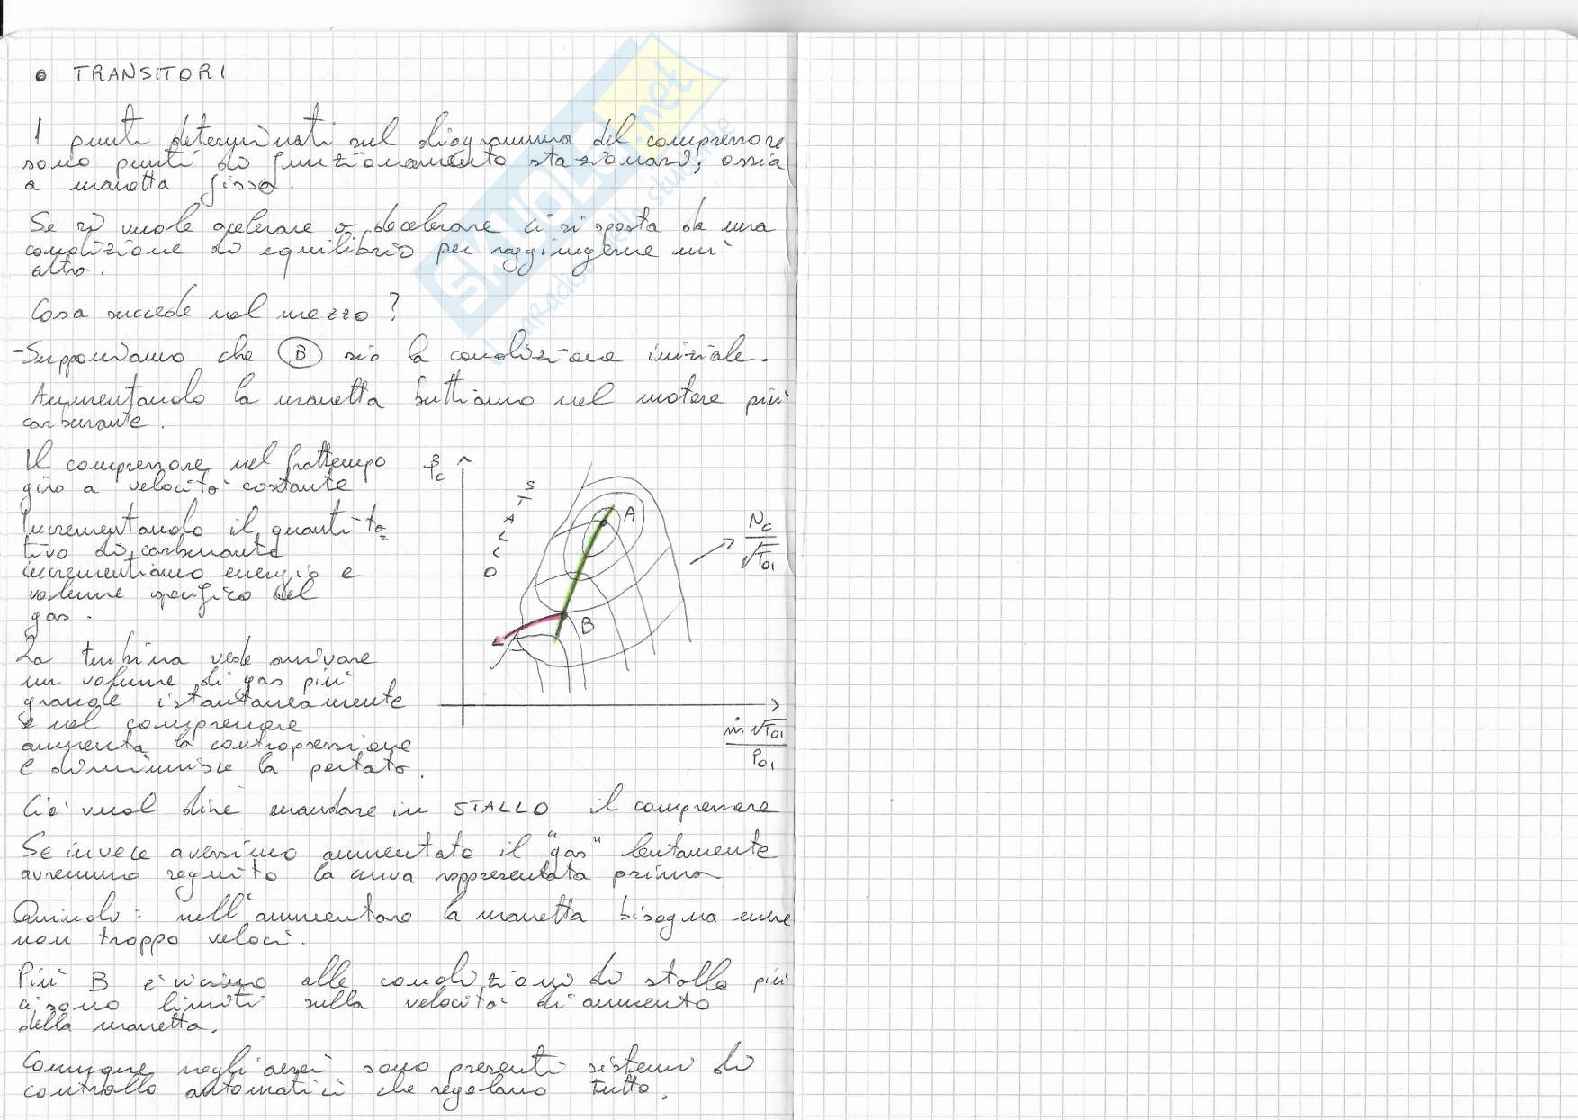 • TRANSITORI
I punti determinati sul diagramma del compressore
sono punti di funzionamento stazionari, ossia
a manetta fissa
Se si vuole accelerare o decelerare ci si sposta da una
condizione di equilibrio per raggiungerne un'
altra.
Cosa succede nel mezzo?
- Supponiamo che B sia la condizione iniziale.
Aumentando la manetta buttiamo nel motore più
carburante.
Il compressore nel frattempo
gira a velocità costante
Incrementando il quantita-
tivo di carburante
incrementiamo energia e
volume specifico del
gas.
La turbina vede arrivare
un volume di gas più
grande istantaneamente
e nel compressore
aumenta la contropressione
e diminuisce la portata.
βc
STALLO
A
B
Nc
√T01
ṁ √T01
P01
Ciò vuol dire mandare in STALLO il compressore
Se invece avessimo aumentato il "gas" lentamente
avremmo seguito la curva rappresentata prima
Quindi: nell'aumentare la manetta bisogna essere
non troppo veloci.
Più B è vicino alle condizioni di stallo più
ci sono limiti sulla velocità di aumento
della manetta.
Comunque negli aerei sono presenti sistemi di
controllo automatici che regolano tutto.